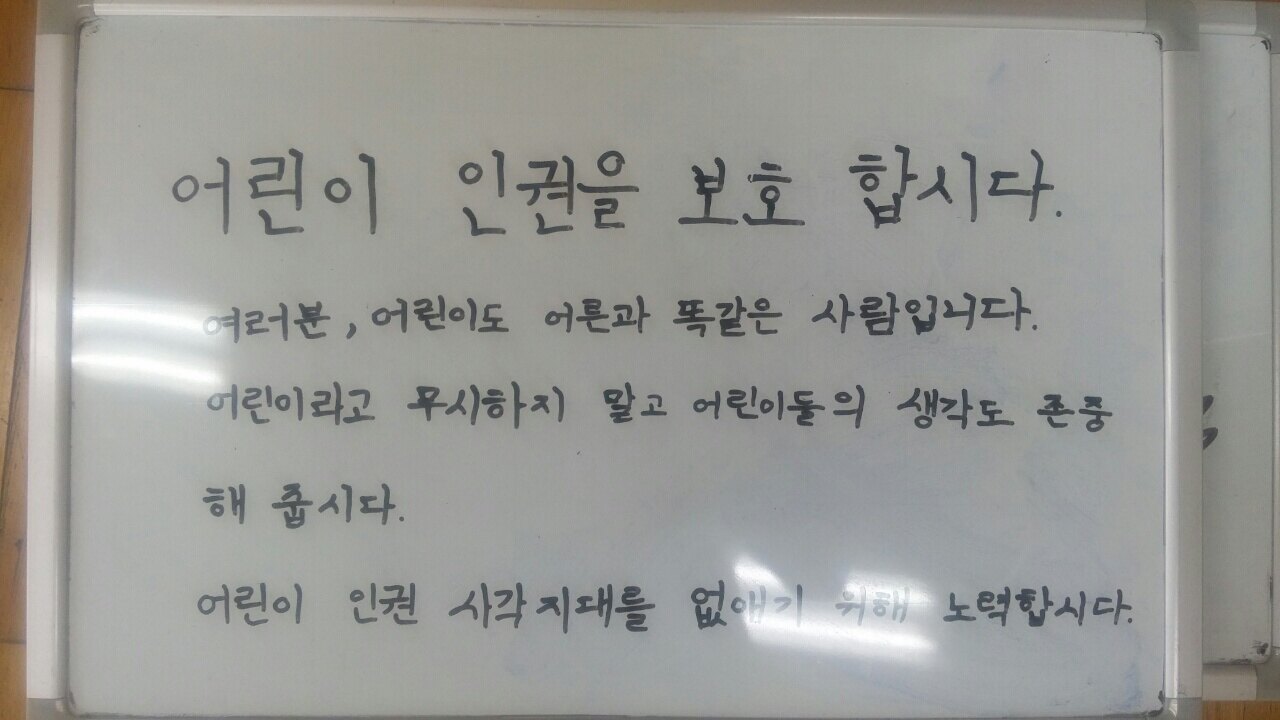 어린이 인권을 보호 합시다.
여러분, 어린이도 어른과 똑같은 사람입니다.
어린이라고 무시하지 말고 어린이들의 생각도 존중
해 줍시다.
어린이 인권 사각지대를 없애기 위해 노력합시다.